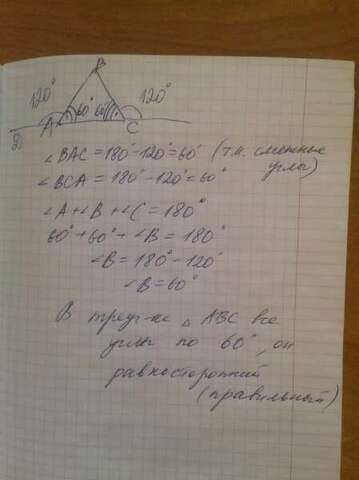 B
120° 60° 60° 120°
D A C
∠BAC = 180° - 120° = 60° (т.к. смежные
углы)
∠BCA = 180° - 120° = 60°
∠A + ∠B + ∠C = 180°
60° + 60° + ∠B = 180°
∠B = 180° - 120°
∠B = 60°
В треуг-ке △ ABC все
углы по 60°, он
равносторонний
(правильный)